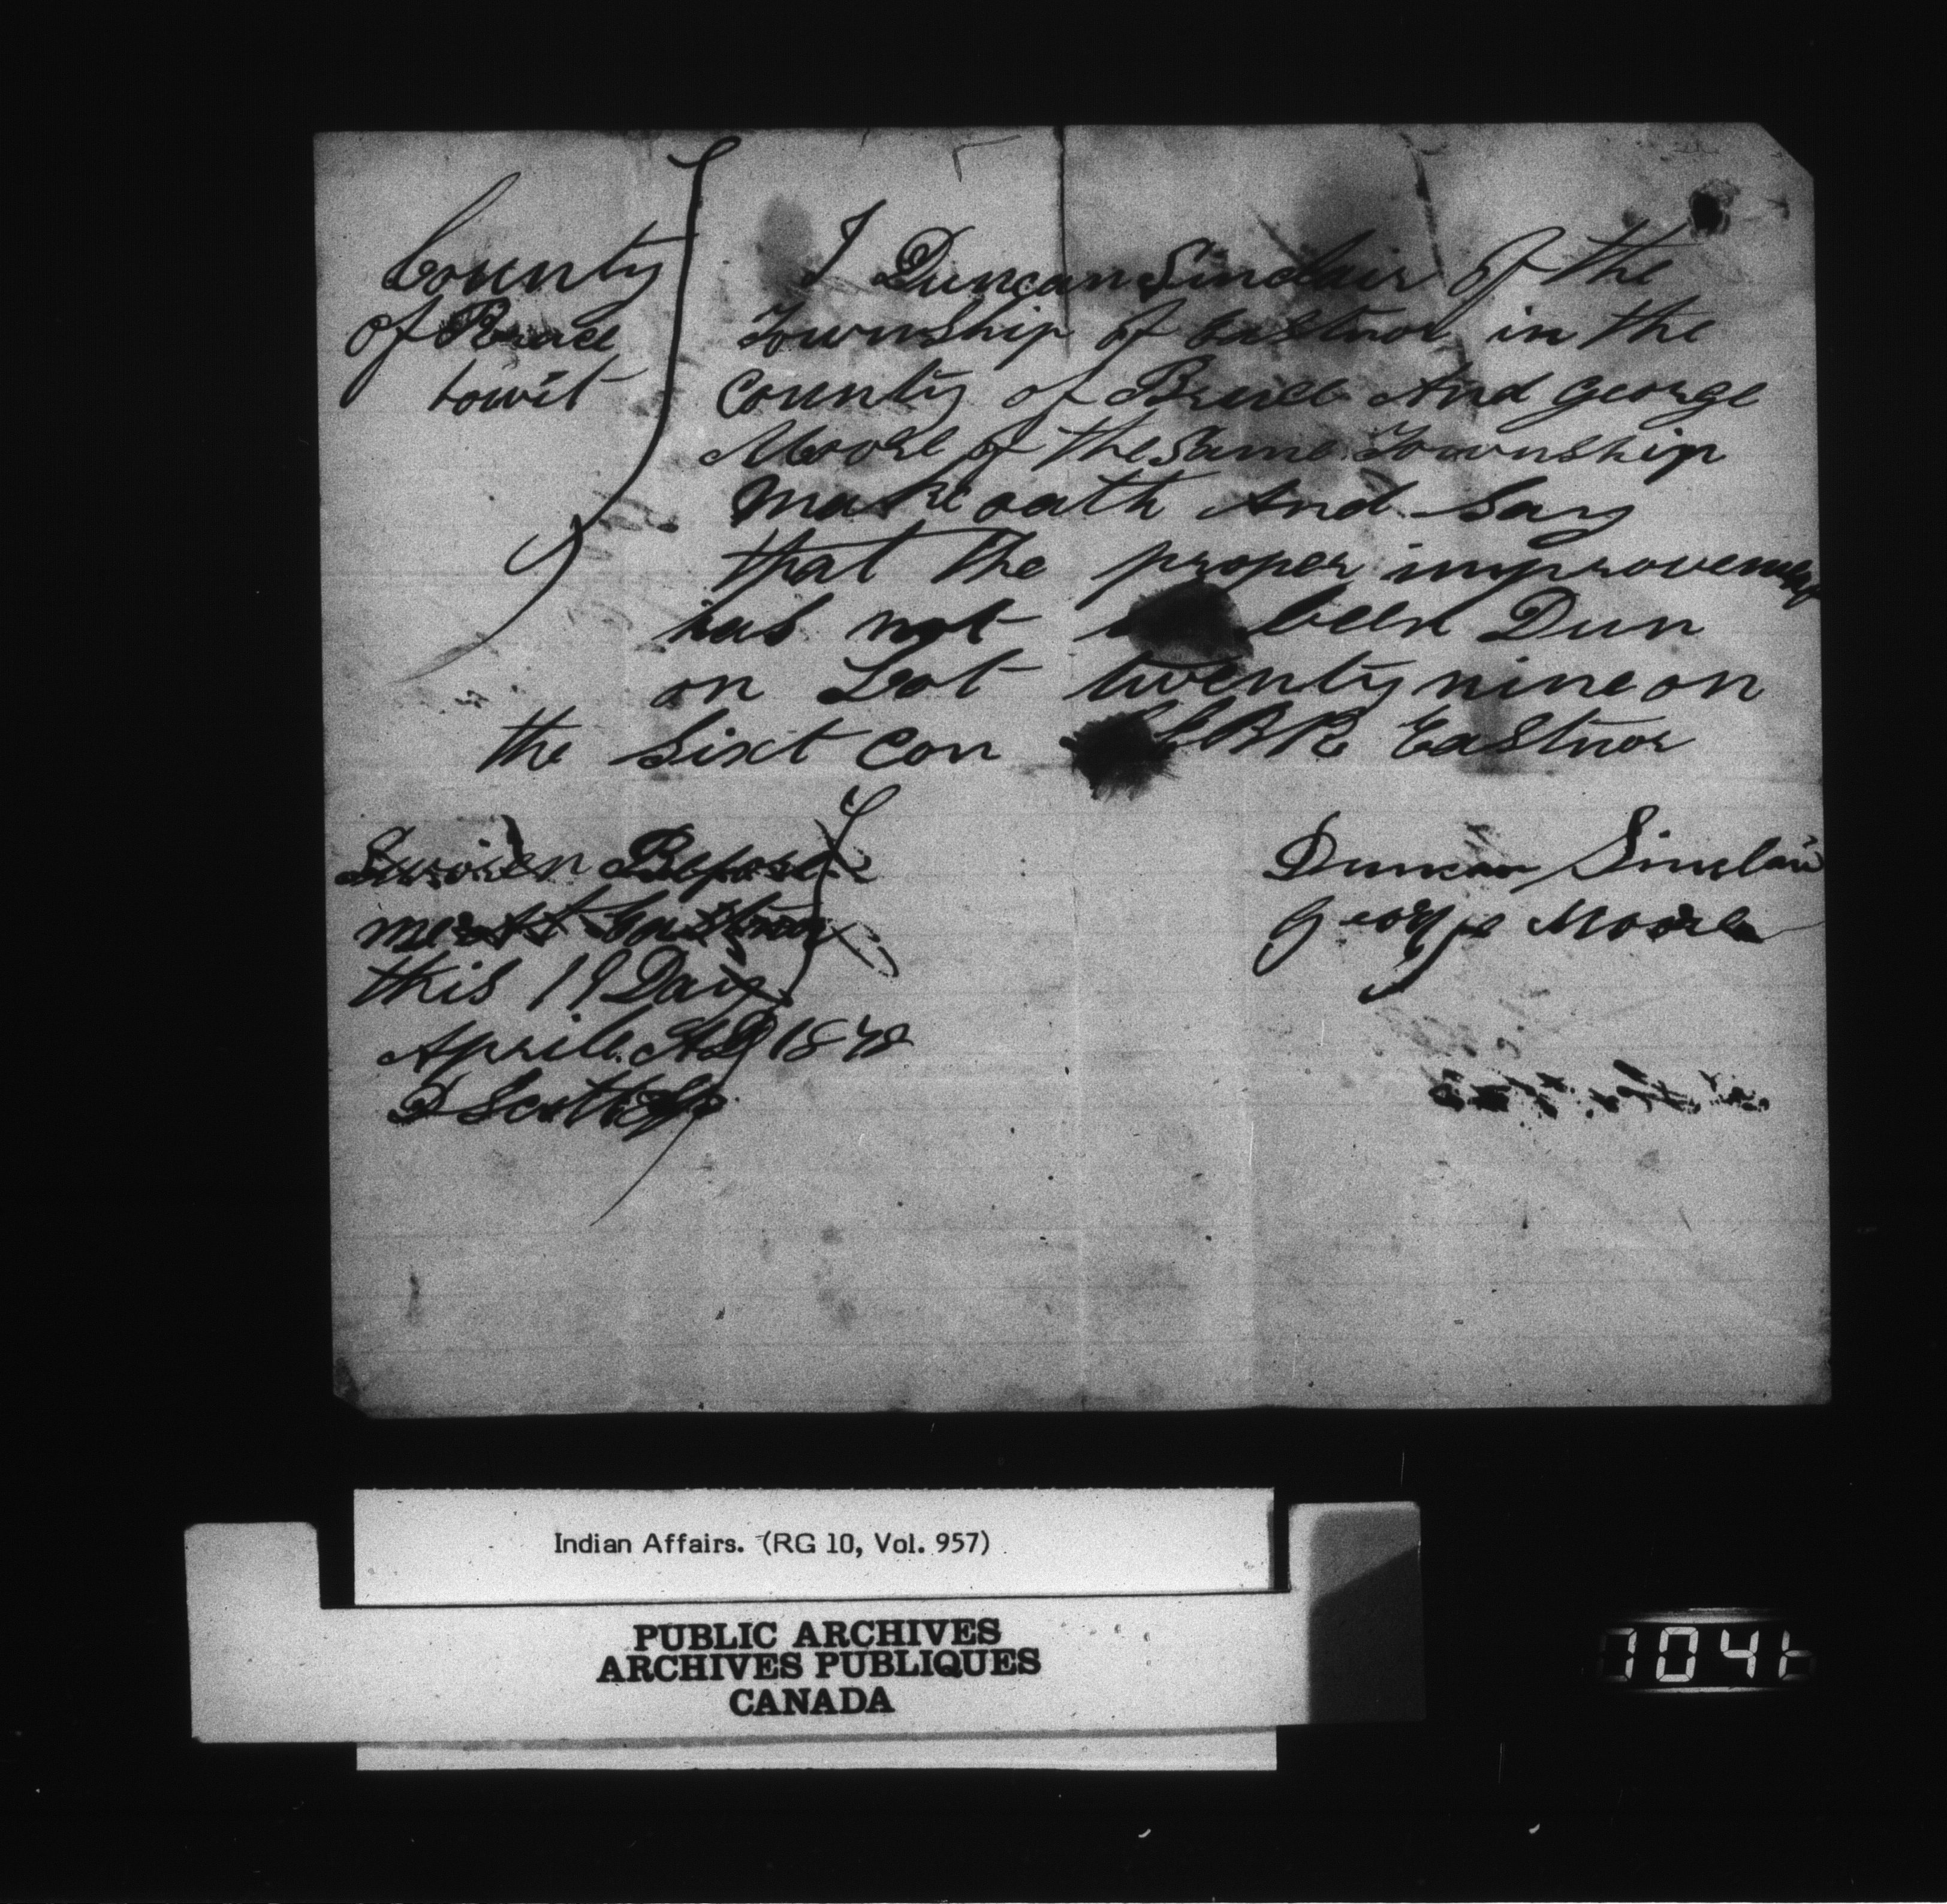 County
of Bruce
towit
I Duncan Sinclair of the
Township of Eastnor in the
County of Bruce And George
Moore of the Same Township
Make oath And Say
that the proper improvement
has not been Dun
on Lot twenty nine on
the Sixt Con EBR Eastnor
Duncan Sinclair
George Moore
Sworen Before
me at Eastnor
this 19 Day
Aprile AD 1878
D Scott JP
Indian Affairs. (RG 10, Vol. 957)
PUBLIC ARCHIVES
ARCHIVES PUBLIQUES
CANADA